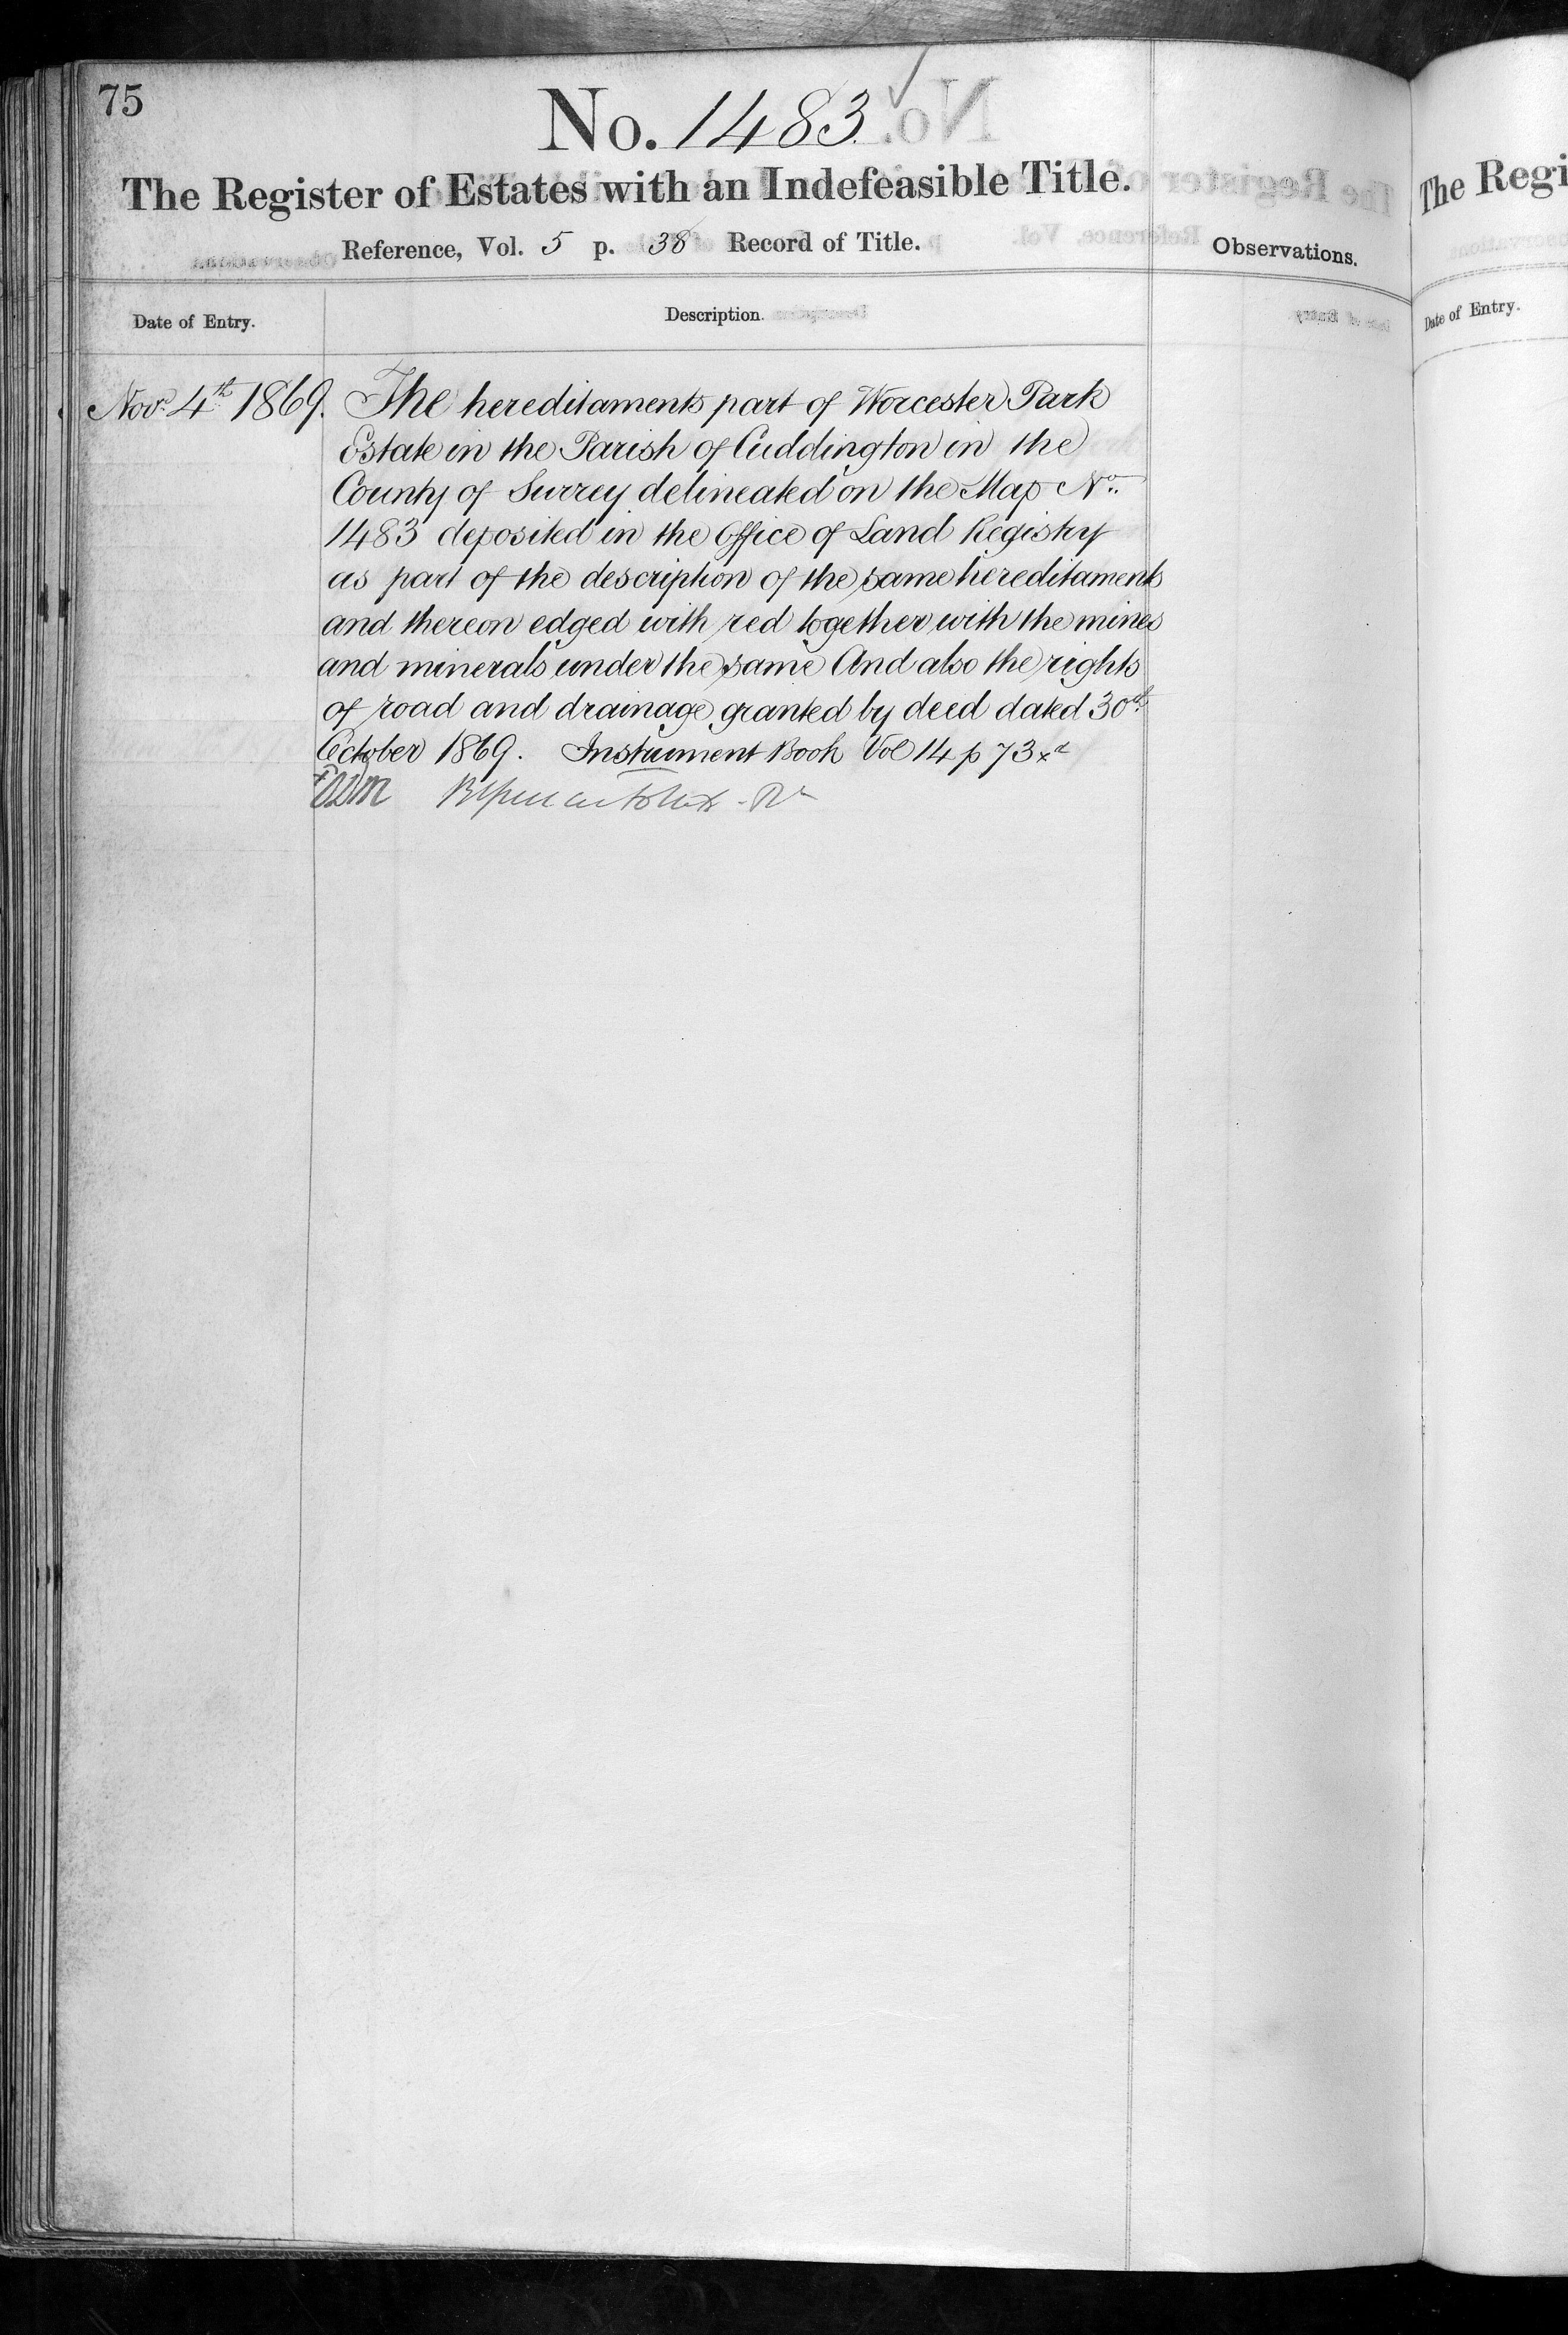 75
No. 1483.
The Register of Estates with an Indefeasible Title.
Reference, Vol. 5 p. 38 Record of Title.
Observations.
Date of Entry.
Description.
Novr. 4th 1869.
The hereditaments part of Worcester Park
Estate in the Parish of Cuddington in the
County of Surrey delineated on the Map No.
1483 deposited in the Office of Land Registry
as part of the description of the same hereditaments
and thereon edged with red together with the mines
and minerals under the same And also the rights
of road and drainage granted by deed dated 30th.
October 1869. Instrument Book Vol 14 p 73
The Regi
Date of Entry.